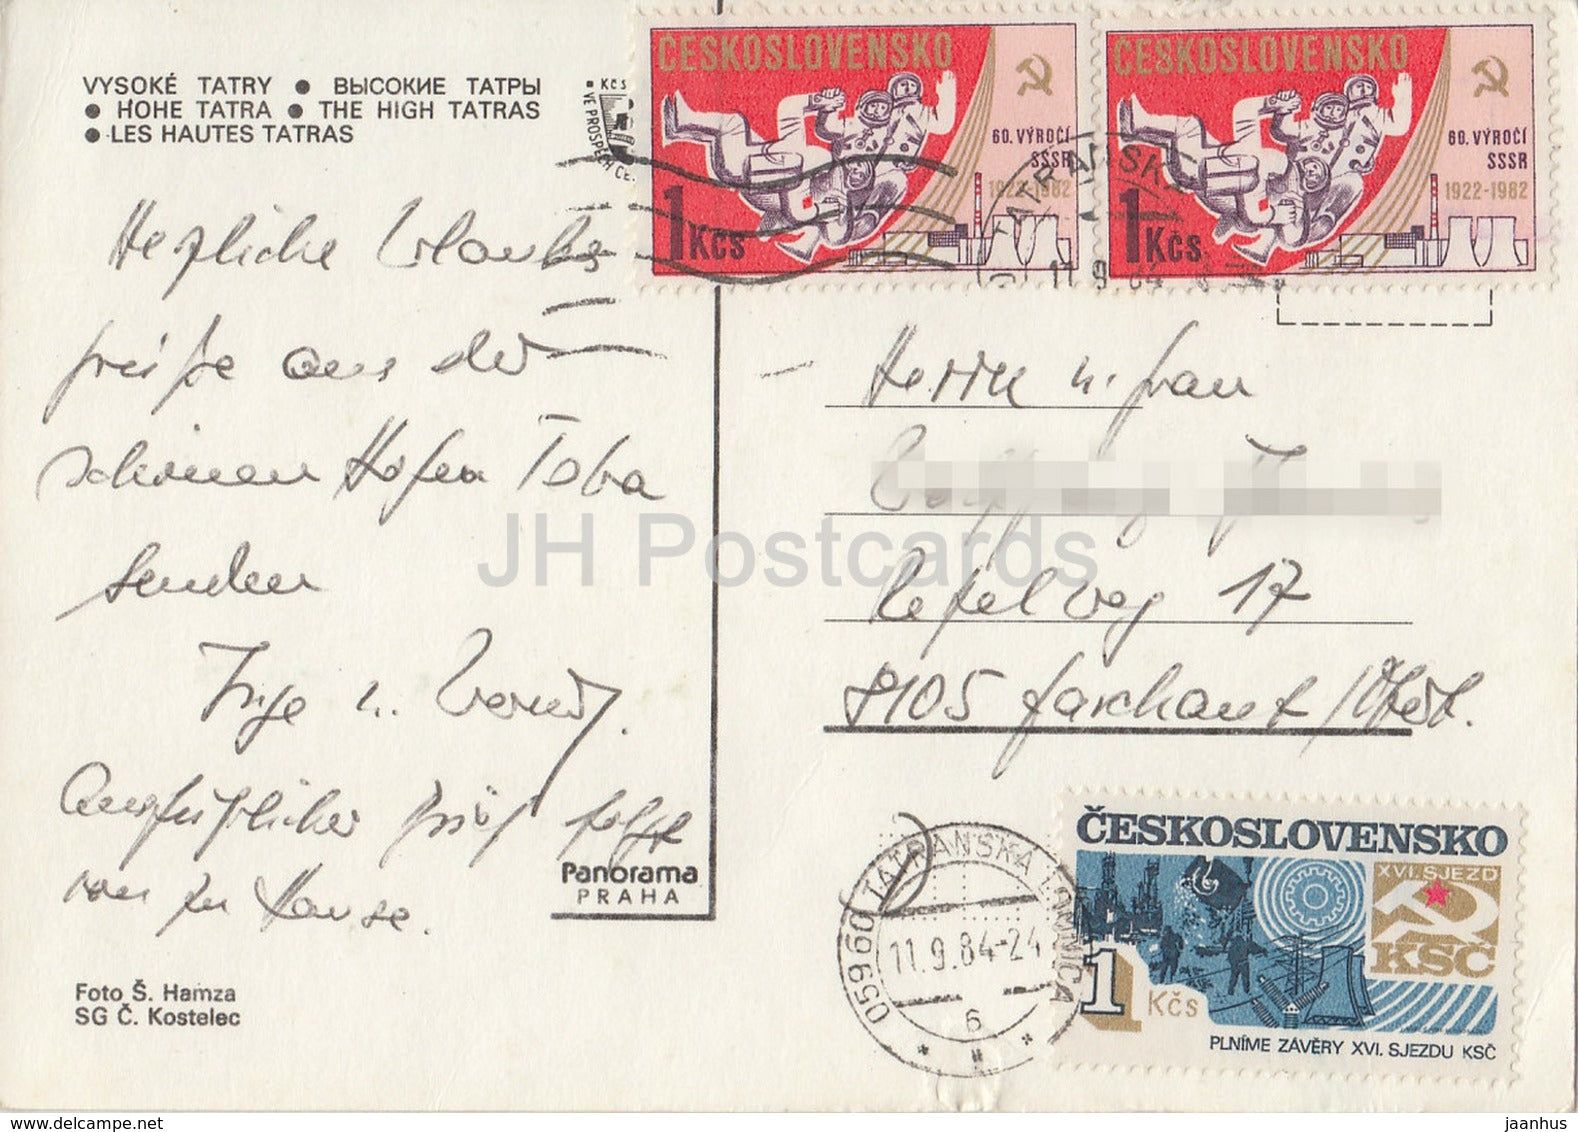 VYSOKÉ TATRY ● ВЫСОКИЕ ТАТРЫ
● HOHE TATRA ● THE HIGH TATRAS
● LES HAUTES TATRAS
Herzliche Urlaubs
grüße aus der
schönen Hohen Tatra
senden
Inge u.
Ausführlicher Brief folgt
von zu Hause.
Panorama
PRAHA
Foto Š. Hamza
SG Č. Kostelec
ČESKOSLOVENSKO
60. VÝROČÍ
SSSR
1922-1982
1 Kčs
ČESKOSLOVENSKO
60. VÝROČÍ
SSSR
1922-1982
1 Kčs
Kčs
VE PROSPĚCH
Herrn u. Frau
17
8105 Farchant / Obb.
059 60 TATRANSKÁ LOMNICA
11.9.84-24
6
ČESKOSLOVENSKO
XVI. SJEZD
KSČ
1 Kčs
PLNÍME ZÁVĚRY XVI. SJEZDU KSČ
JH Postcards
delcampe.net
jaanhus